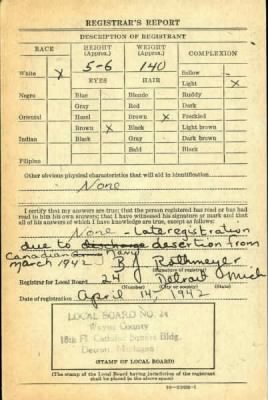 REGISTRAR'S REPORT
DESCRIPTION OF REGISTRANT
RACE HEIGHT (Approx.) WEIGHT (Approx.) COMPLEXION
White X 5-6 140 Sallow
EYES HAIR Light X
Negro Blue Blonde Ruddy
Gray Red Dark
Oriental Hazel Brown X Freckled
Brown X Black Light brown
Indian Black Gray Dark brown
Bald Black
Filipino
Other obvious physical characteristics that will aid in identification
None
I certify that my answers are true; that the person registered has read or has had
read to him his own answers; that I have witnessed his signature or mark and that
all of his answers of which I have knowledge are true, except as follows:
None - Late registration
due to discharge desertion from
Canadian Navy
March 1942 B J Rothmeyer
(Signature of registrar)
Registrar for Local Board 24 Detroit Mich
(Number) (City or county) (State)
Date of registration April 14, 1942
LOCAL BOARD NO. 24
Wayne County
18th Fl Catholic Bldg.
Detroit Michigan
(STAMP OF LOCAL BOARD)
(The stamp of the Local Board having jurisdiction of the registrant
shall be placed in the above space.)